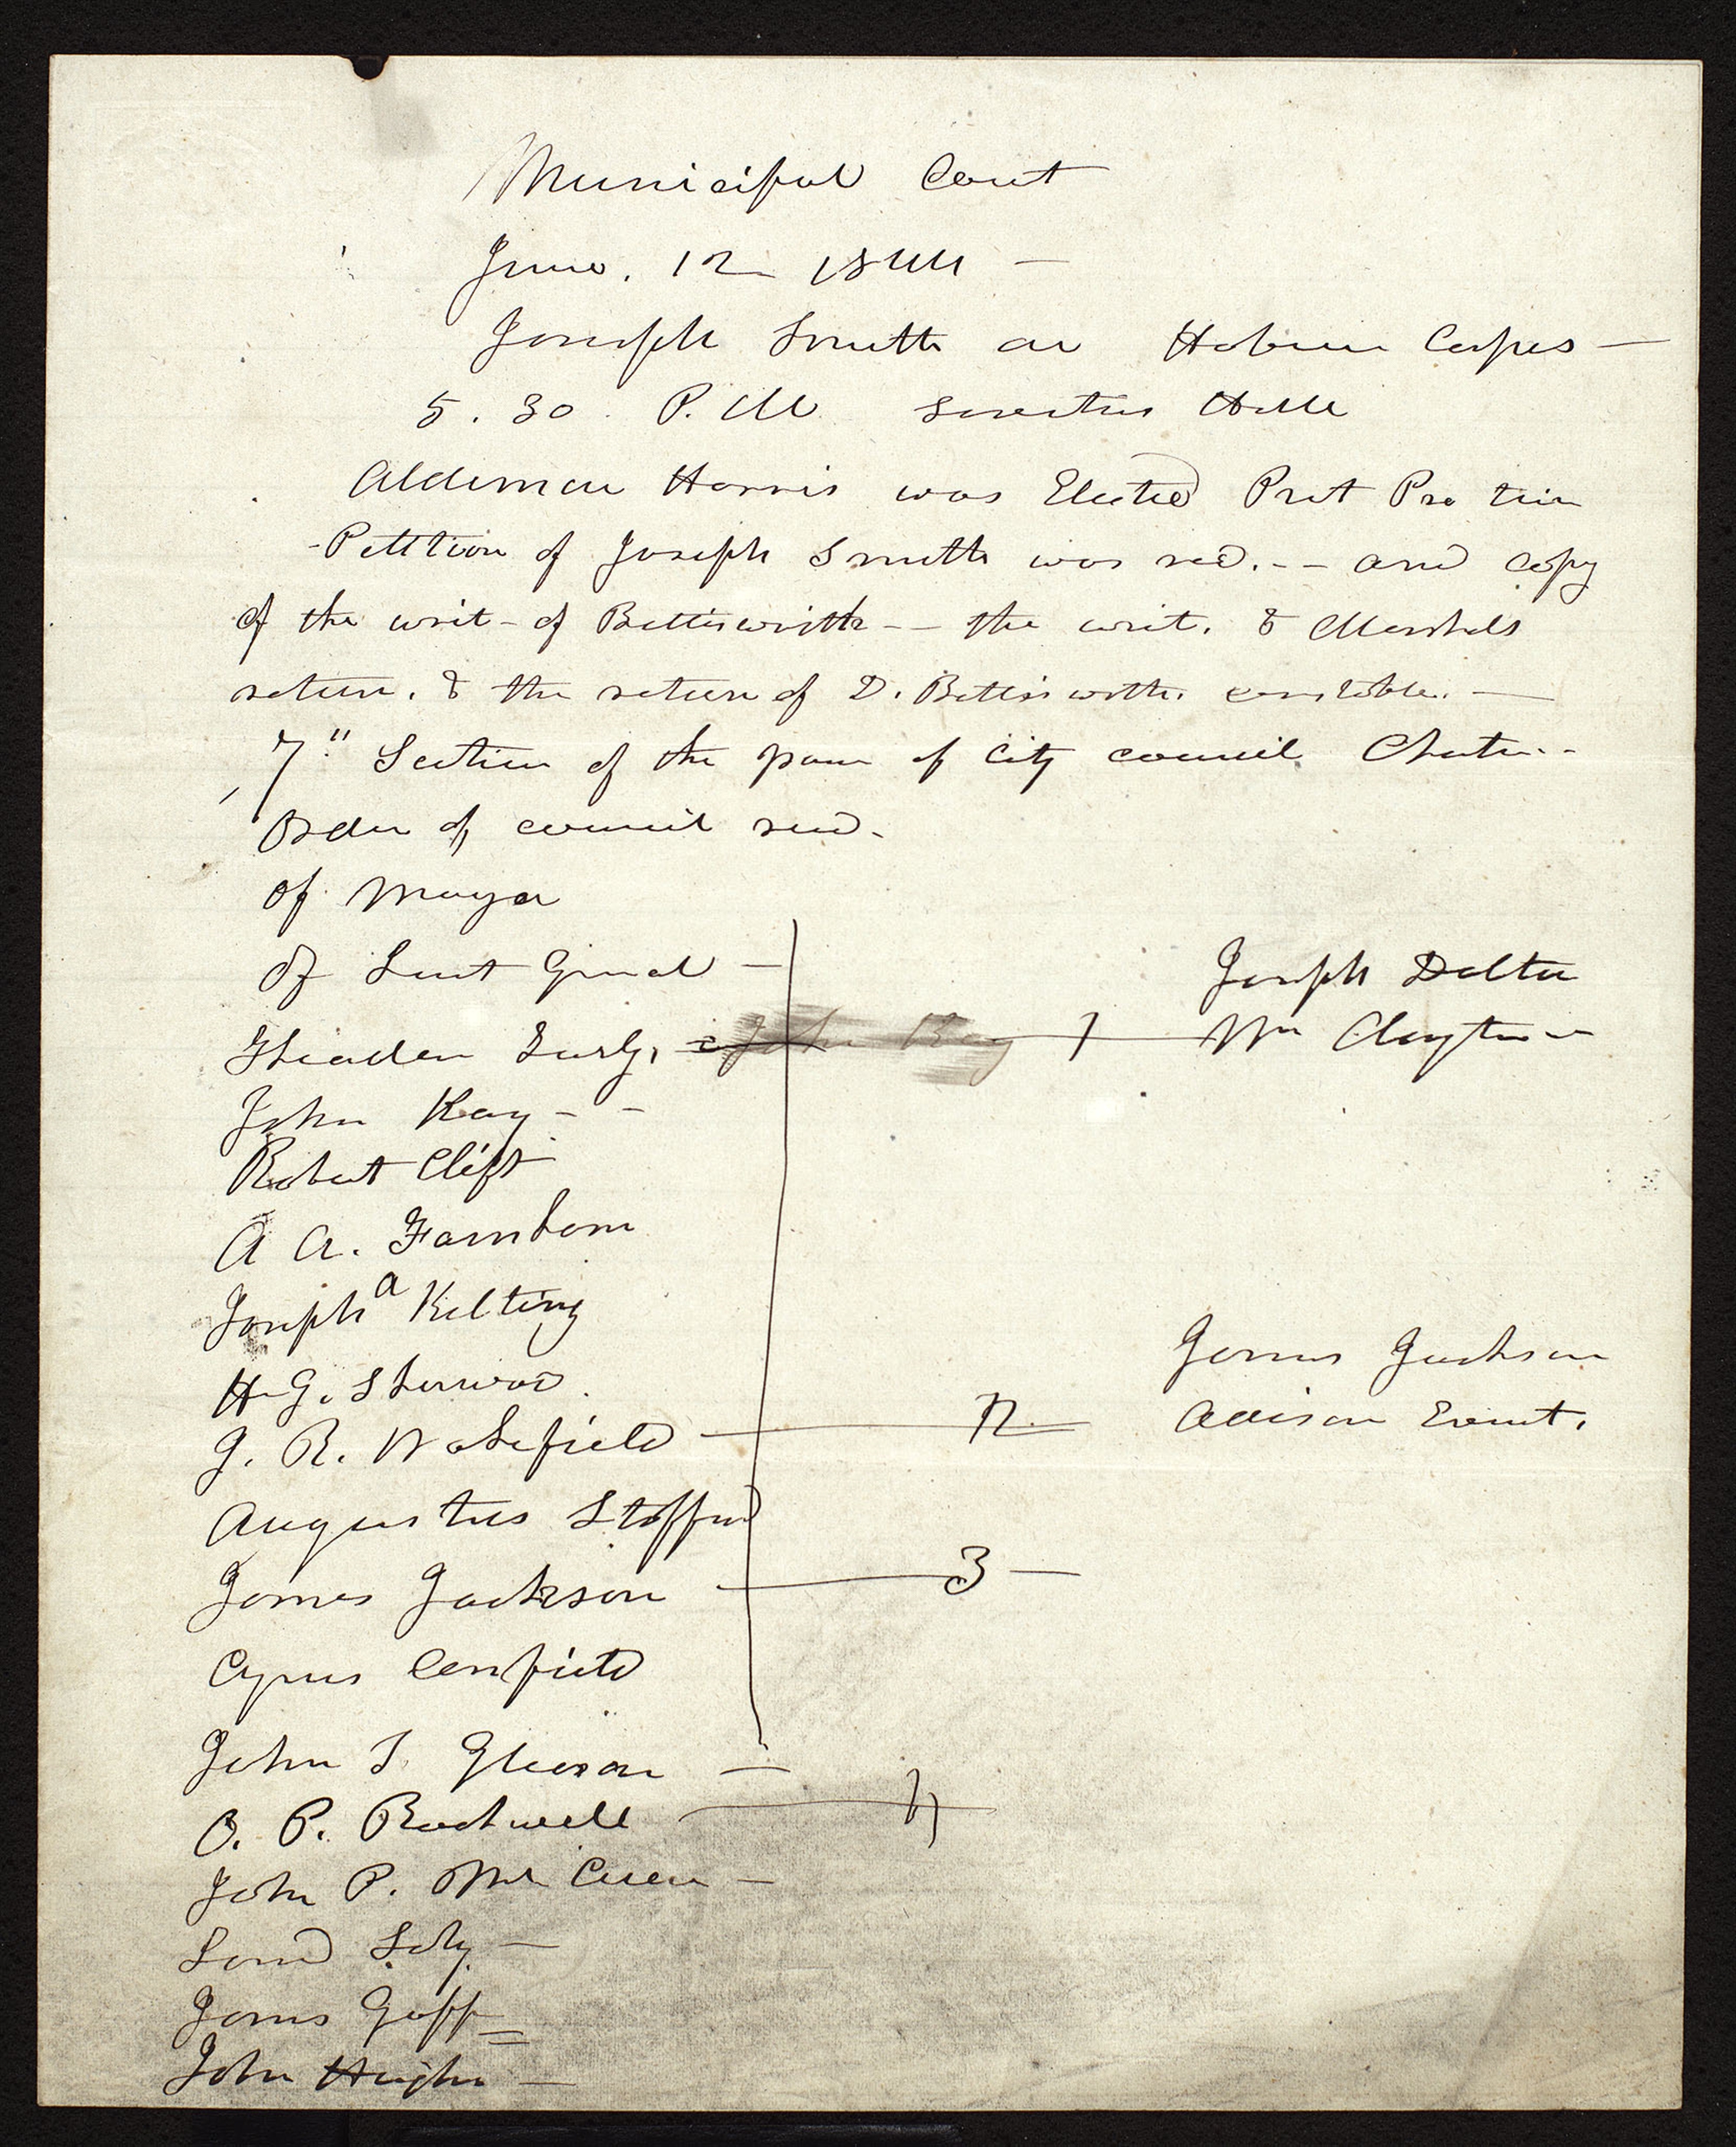 Municipal Court
June. 12 1844 —
Joseph Smith on Habeus Corpus —
5.30. P.M Seventies Hall
Alderman Harris was Elected Prst Pro tem
-Petition of Joseph Smith was red. -- and copy
of the writ - of Bettisworth -- the writ. & Marshals
return. & the return of D. Bettisworth. constable. —
7" Section of the power of City council Charter --
Order of council read.
of Mayor
Of Leut General —
Theodore Turly, John Kay 1 — Wm Clayton —
Joseph Dalton
John Kay - -
Robert Clift
A A. Farnham
Joseph a Kelting
H. G. Sherwood.
J. R. Wakefield — 2. —
James Jackson
Addison Everett.
Augustus Stafford
James Jackson — 3 —
Cyrus Canfield
John T. Gleason —
O. P. Rockwell — 4
John P. Mc Cuen —
James Goff =
John Hughes —